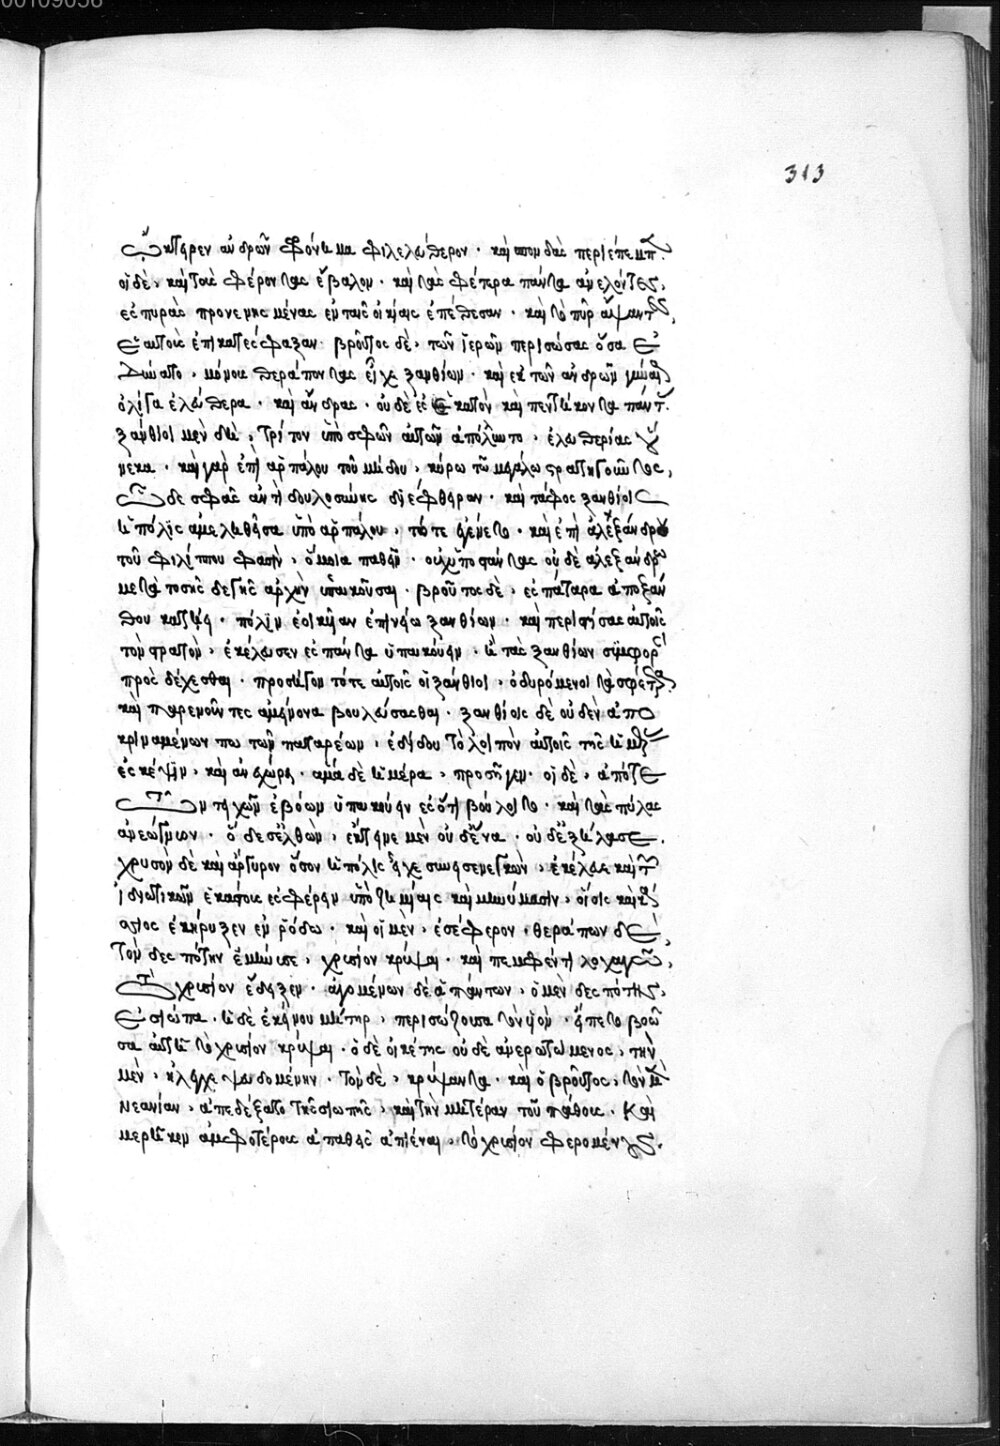 00109056
313
ᾤκτειρεν ἀνδρῶν φρόνημα φιλελεύθερον · καὶ σπονδὰς περιέπεμπεν.
οἱ δὲ, καὶ τοὺς φέροντας ἔβαλον · καὶ τὰς σφέτερα πάντα ἀνελόντες,
ἐς πυρὰς προνενησμένας ἐν ταῖς οἰκίαις ἐπέθεσαν · καὶ τὸ πῦρ ἅψαντες,
ἑαυτοὺς ἐπικατέσφαξαν · βροῦτος δὲ, τῶν ἱερῶν περισώσας ὅσα ἐ
δύνατο, μόνους θεράποντας εἷλε ξανθίων · καὶ ἐκ τῶν ἀνδρῶν γύναια
ὀλίγα ἐλεύθερα · καὶ ἄνδρας · οὐδὲ ἐς ἑκατὸν καὶ πεντήκοντα πάντας.
ξάνθιοι μὲν δὴ, τρίτον ὑπὸ σφῶν αὐτῶν ἀπόλλυντο, ἐλευθερίας οὕ
νεκα · καὶ γὰρ ἐπὶ ἁρπάλου τοῦ μήδου, κύρῳ τῷ μεγάλῳ στρατηγοῦντος,
ὧδε σφᾶς ἀντὶ δουλοσύνης διέφθειραν · καὶ τάφος ξανθίοις
ἡ πόλις ἀμεληθεῖσα ὑπὸ ἁρπάλου, τότε ἐγένετο · καὶ ἐπὶ ἀλεξάνδρου
τοῦ φιλίππου φασὶν, ὅμοια παθεῖν · οὐχ ὑποστάντας οὐδὲ ἀλεξάνδρῳ
μετὰ τοσῆσδε γῆς ἀρχὴν ὑπακοῦσαι · βροῦτος δὲ, ἐς πάταρα ἀπὸ ξάν
θου κατῄει · πόλιν ἐοικυῖαν ἐπινείῳ ξανθίων · καὶ περιστήσας αὐτοῖς
τὸν στρατὸν, ἐκέλευσεν ἐς πάντα ὑπακούειν · ἢ τὰς ξανθίων συμφορὰς
προσδέχεσθαι · προσήγοντό τε αὐτοῖς οἱ ξάνθιοι, ὀδυρόμενοι τὰ σφέτερα
καὶ παραινοῦντες ἀμείνονα βουλεύσασθαι · ξανθίοις δὲ οὐδὲν ἀπο
κριναμένων πω τῶν παταρέων, ἐδίδου τὸ λοιπὸν αὐτοῖς τῆς ἡμέρας
ἐς σκέψιν, καὶ ἀνεχώρει · ἅμα δὲ ἡμέρᾳ, προσῆγεν · οἱ δὲ, ἀπό τε
τῶν τειχῶν ἐβόων ὑπακούειν ἐς ὅτι βούλοιτο · καὶ τὰς πύλας
ἀνεῴγνυον · ὁ δ᾽ ἐσελθὼν, ἔκτεινε μὲν οὐδένα · οὐδ᾽ ἐξήλασεν.
χρυσὸν δὲ καὶ ἄργυρον ὅσον ἡ πόλις εἶχε συνεσενεγκὼν, ἐκέλευε καὶ τὸν
ἰδιωτικὸν ἑκάστους ἐσφέρειν ὑπὸ ζημίαις καὶ μηνύμασιν, οἵοις καὶ κάσ
σιος ἐκήρυξεν ἐν ῥόδῳ · καὶ οἱ μὲν, ἐσέφερον · θεράπων δὲ,
τὸν δεσπότην ἐμήνυσε, χρυσίον κρύψαι · καὶ πεμφθέντι λοχαγῷ,
τὸ χρυσίον ἔδειξεν · ἀγομένων δὲ ἁπάντων, ὁ μὲν δεσπότης,
ἐσιώπα · ἡ δὲ ἐκείνου μήτηρ, περισώζουσα τὸν υἱὸν · εἵπετο βοῶ
σα αὐτὴ τὸ χρυσίον κρύψαι · ὁ δὲ οἰκέτης οὐδὲ ἀνερωτώμενος, τὴν
μὲν, ἤλεγχε ψευδομένην · τὸν δὲ, κρύψαντα · καὶ ὁ βροῦτος, τὸν μὲν
νεανίαν, ἀπεδέξατο τῆς σιωπῆς, καὶ τὴν μητέραν τοῦ πάθους · καὶ
μεθῆκεν ἀμφοτέρους ἀπαθεῖς ἀπιέναι, τὸ χρυσίον φερομένους.